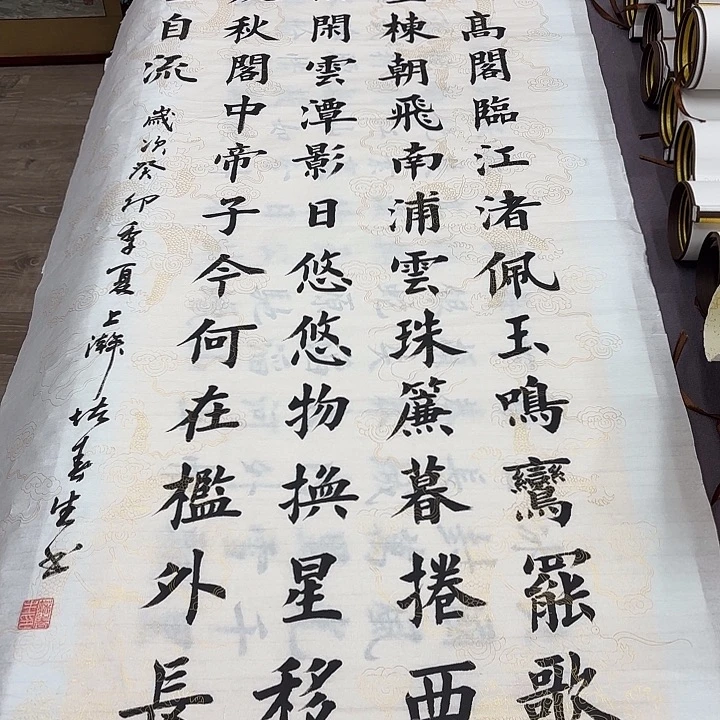 高閣臨江渚佩玉鳴鸞罷歌
棟朝飛南浦雲珠簾暮捲西
閑雲潭影日悠悠物換星移
秋閣中帝子今何在檻外長
自流
歲次癸卯季夏上澣春生书